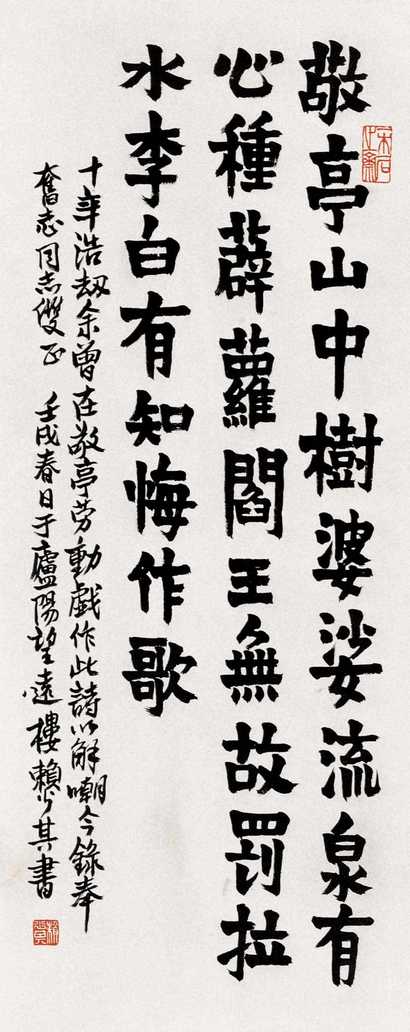 敬亭山中樹婆娑流泉有
心種薜蘿閻王無故罰拉
水李白有知悔作歌
十年浩劫余曾在敬亭劳動戯作此詩以解嘲今錄奉
奮志同志雙正 壬戌春日于廬陽望遠樓賴少其書